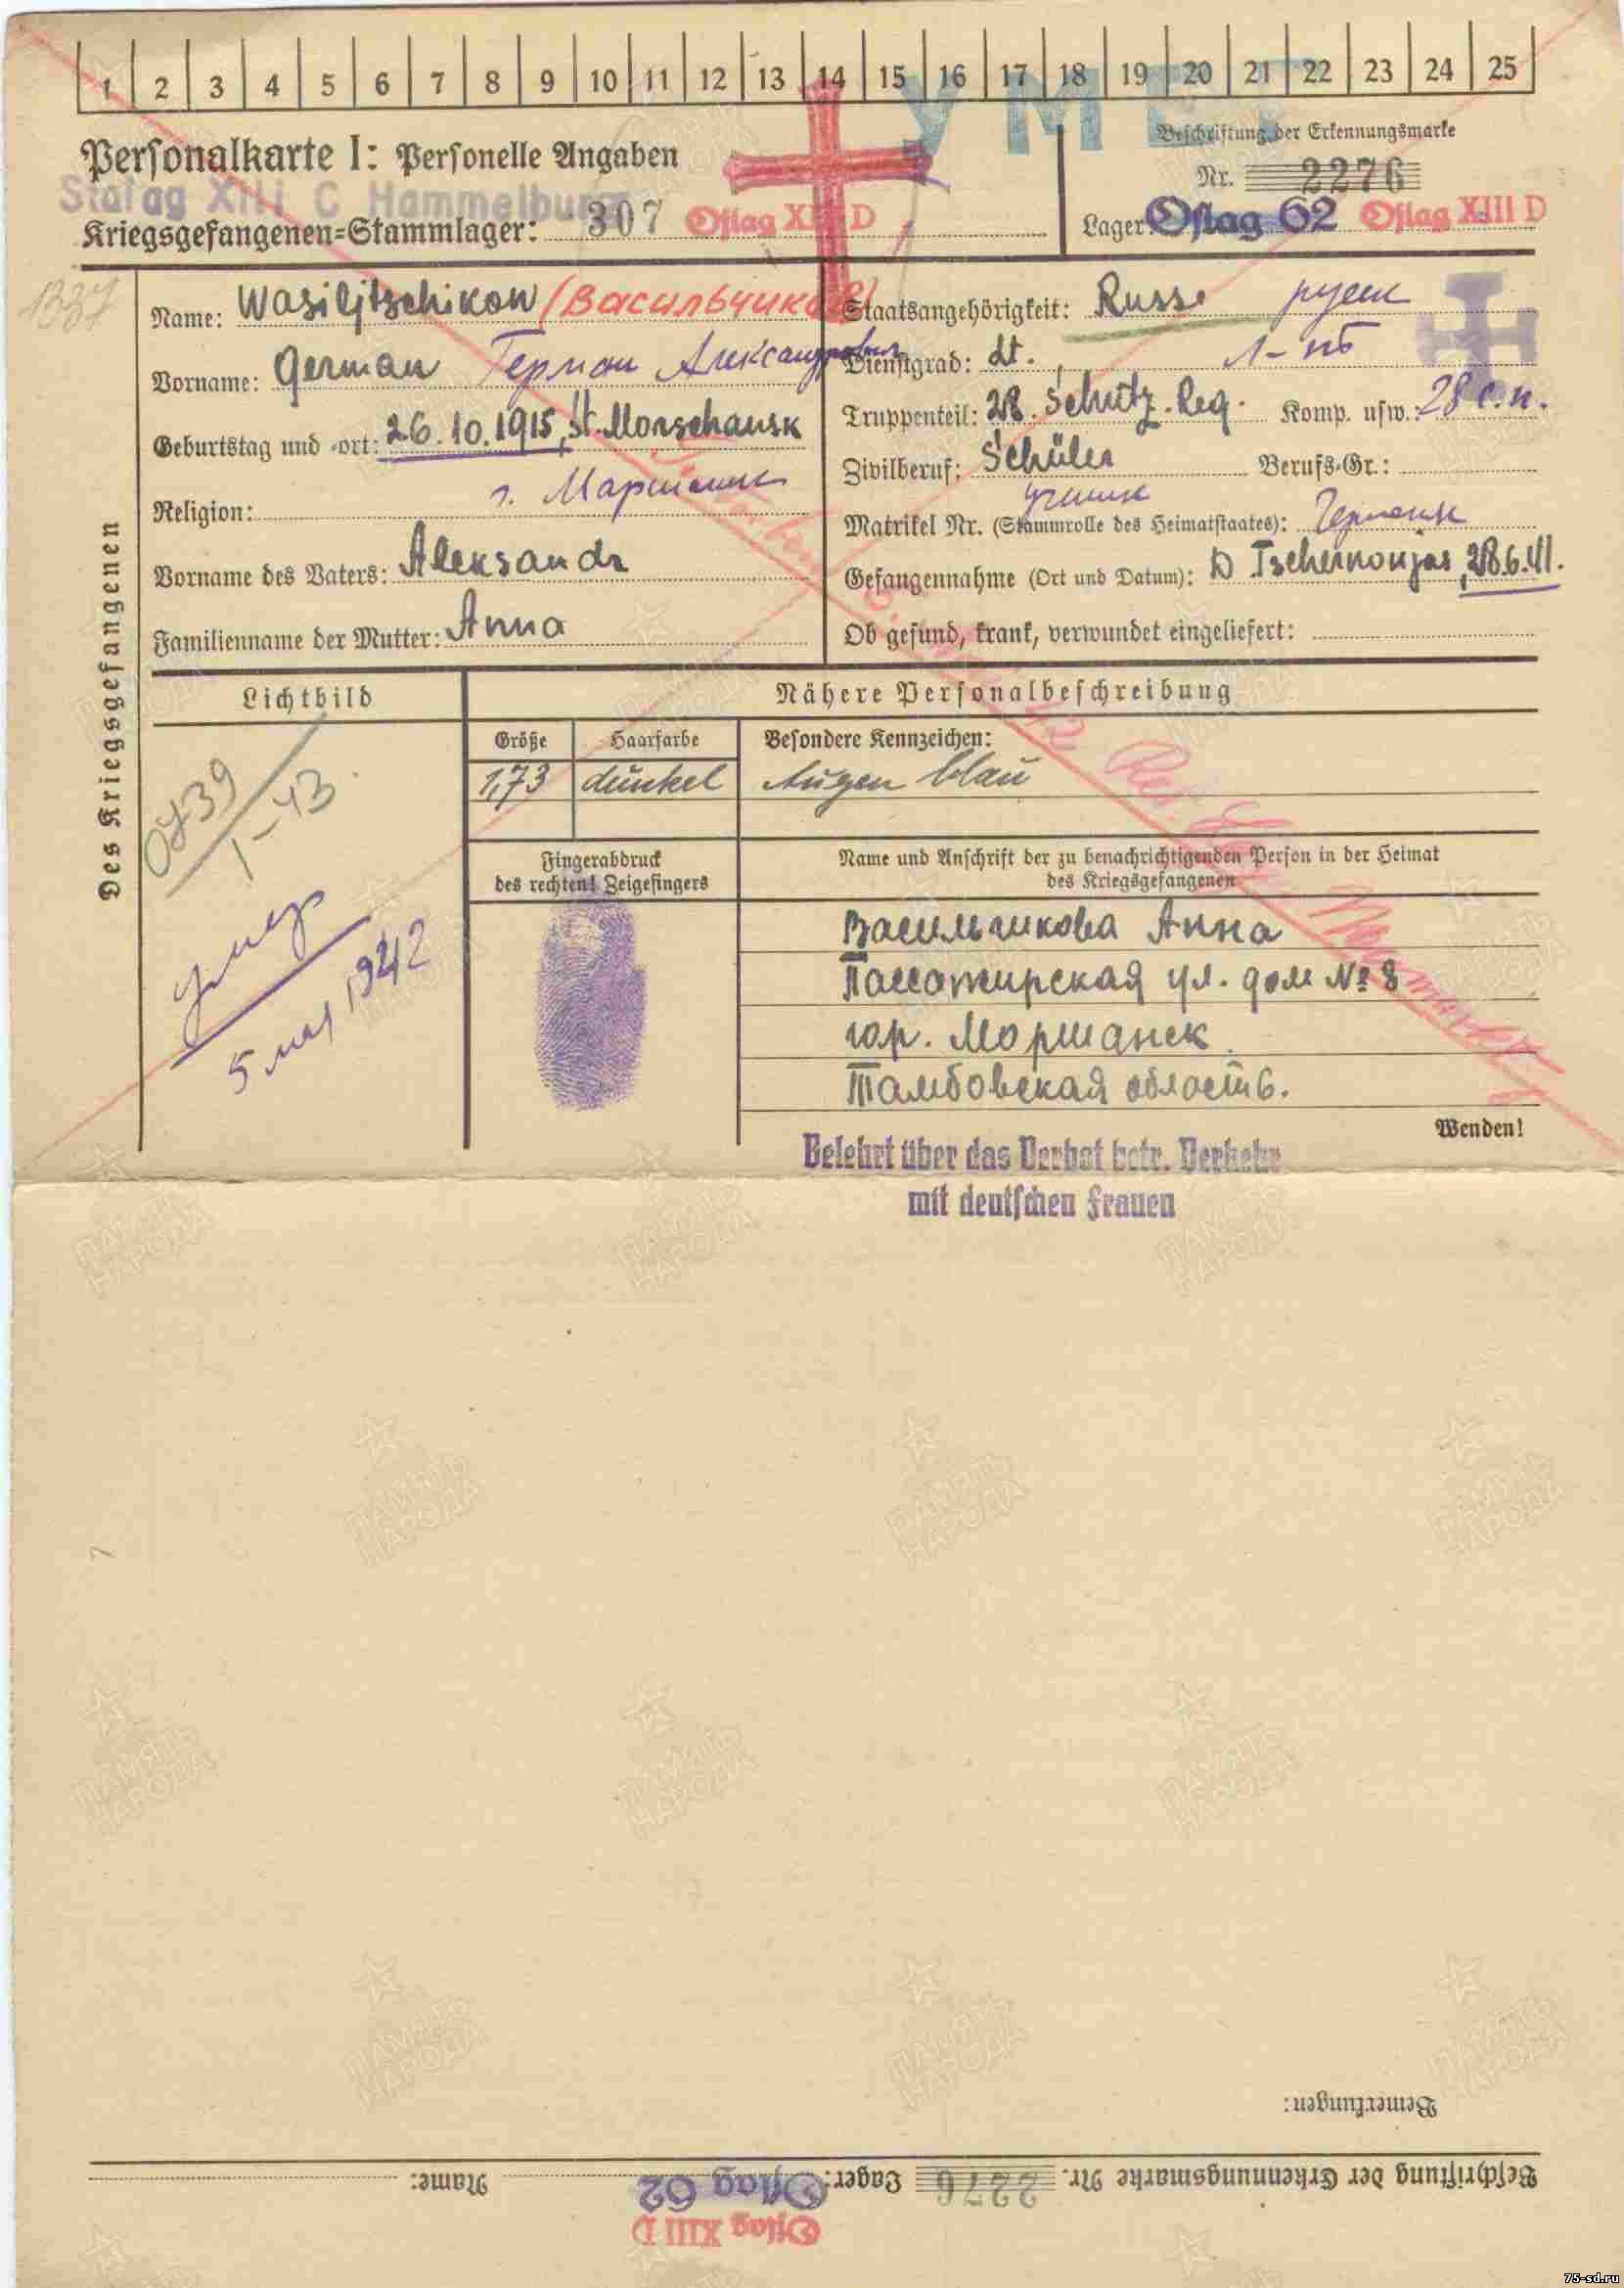 1 2 3 4 5 6 7 8 9 10 11 12 13 14 15 16 17 18 19 20 21 22 23 24 25
Personalkarte I: Personelle Angaben
Beschriftung der Erkennungsmarke
Nr. 2276
Stalag XIII C Hammelburg
Kriegsgefangenen=Stammlager: 307 Oflag XIII D
Lager: Oflag 62 Oflag XIII D
1337
Des Kriegsgefangenen
Name: Wasiljtschikow (Васильчиков)
Vorname: German Герман Александрович
Geburtstag und -ort: 26.10.1915, St. Morschansk
Religion:
Vorname des Vaters: Aleksandr
Familienname der Mutter: Anna
Staatsangehörigkeit: Russe русск
Dienstgrad: Lt. л-нт
Truppenteil: 28. Schütz. Reg. Komp. usw.: 28 с.п.
Zivilberuf: Schüler Berufs-Gr.:
Matrikel Nr. (Stammrolle des Heimatstaates):
Gefangennahme (Ort und Datum): 28.6.41.
Ob gesund, krank, verwundet eingeliefert:
Lichtbild
Nähere Personalbeschreibung
Größe Haarfarbe Besondere Kennzeichen:
1,73 dunkel Augen blau
0739
1-43
умер
5 мая 1942
Fingerabdruck
des rechten! Zeigefingers
Name und Anschrift der zu benachrichtigenden Person in der Heimat
des Kriegsgefangenen
Васильчикова Анна
Пассажирская ул. дом № 8
гор. Моршанск
Тамбовская область.
Wenden!
Belehrt über das Verbot betr. Verkehr
mit deutschen Frauen
Bemerkungen:
Beschriftung der Erkennungsmarke Nr. 2276 Lager: Oflag 62 Name:
Oflag XIII D
ПАМЯТЬ НАРОДА
75-sd.ru